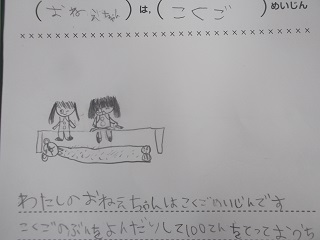 (おねえちゃん)は,(こくご)めいじん
わたしのおねえちゃんはこくごめいじんです
こくごのぶんをよんだりして100てんをとっておうち